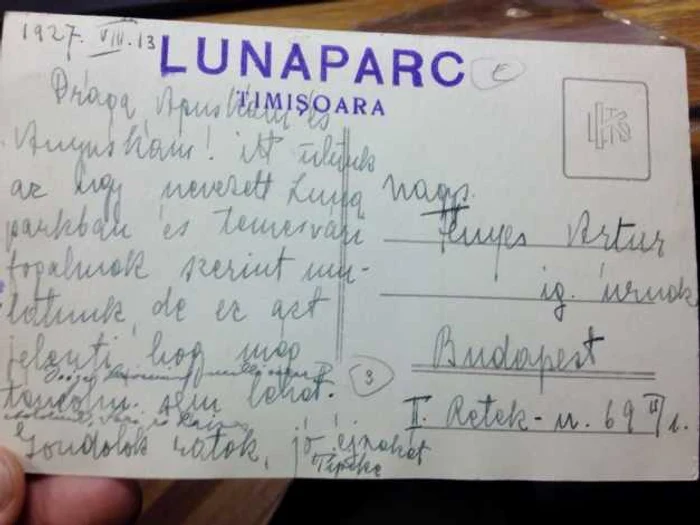 1927. VIII. 13
LUNAPARC
TIMIȘOARA
Drága Apuskám és
Anyuskám! itt ülünk
az úgy nevezett Luna
parkban és temesvári
fogalmak szerint mu-
latunk, de ez azt
jelenti, hogy még
táncolni sem lehet.
Gondolok rátok, jó éjszakát
Nagys.
Fenyes Artur
ig. úrnak
Budapest
II. Retek-u. 69
3